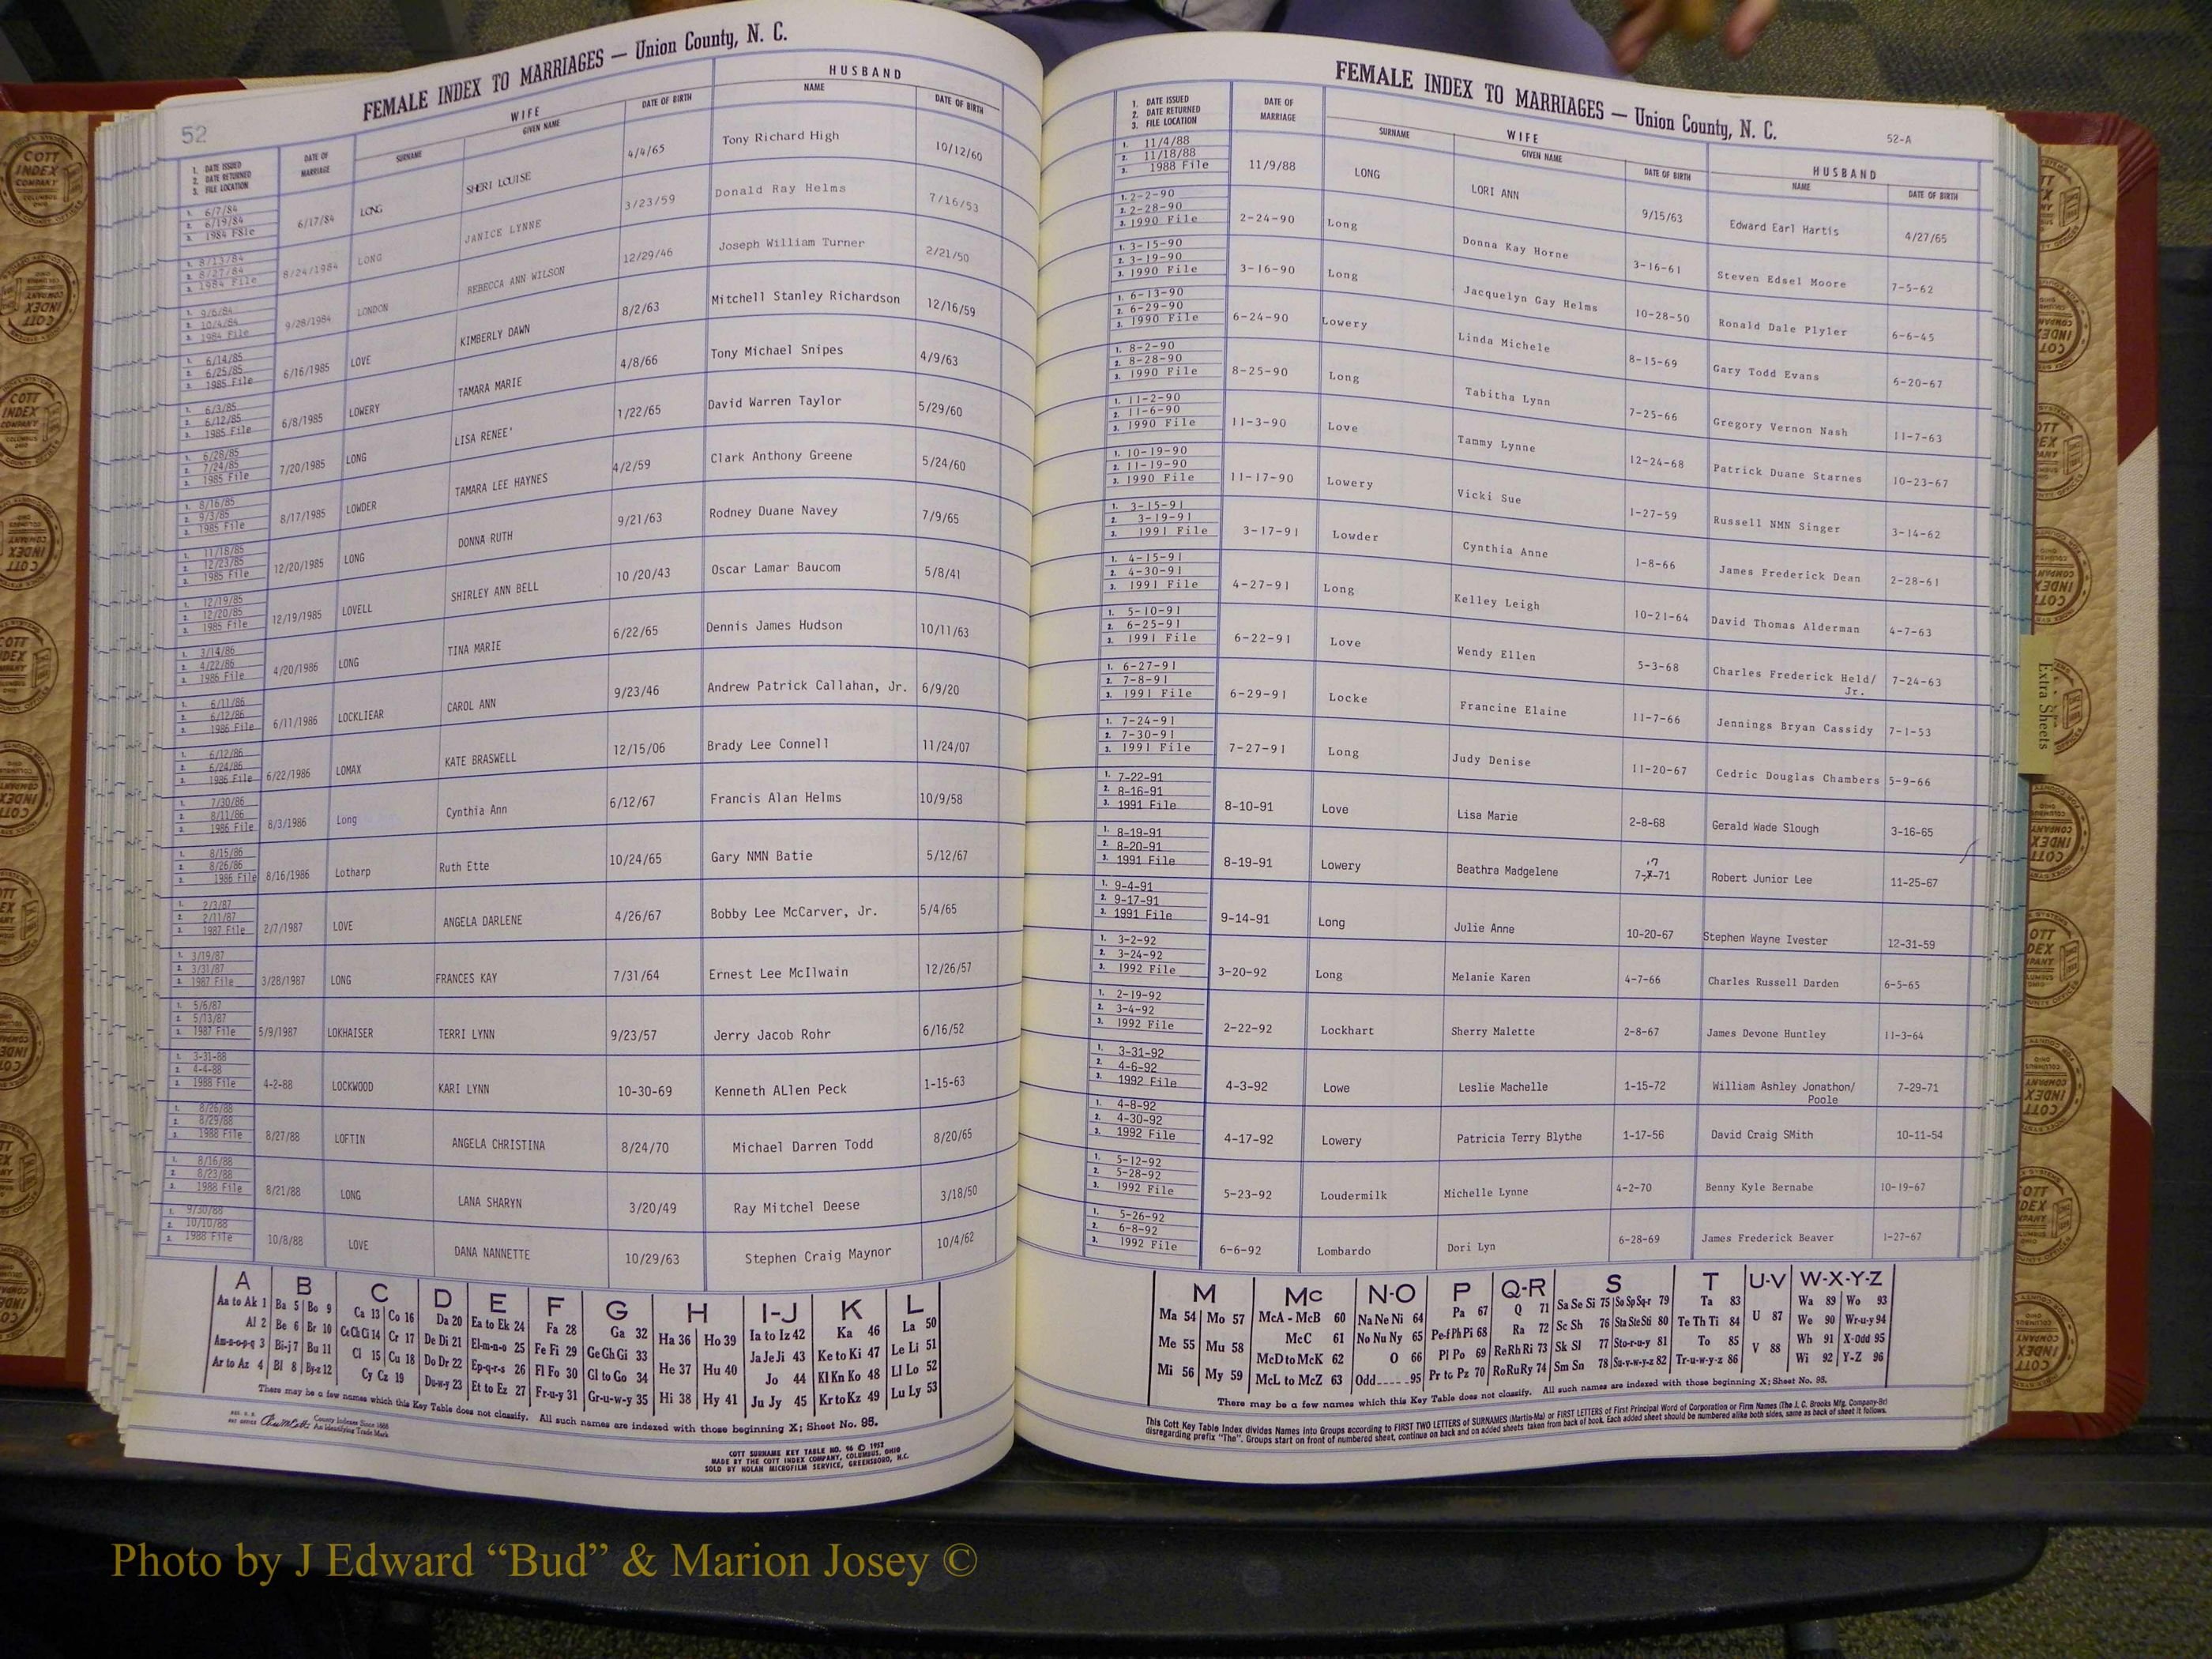 52
FEMALE INDEX TO MARRIAGES — Union County, N. C.
1. DATE ISSUED
2. DATE RETURNED
3. FILE LOCATION
DATE OF MARRIAGE
WIFE
SURNAME GIVEN NAME DATE OF BIRTH
HUSBAND
NAME DATE OF BIRTH
1. 6/7/84
2. 6/19/84
3. 1984 File
6/17/84 LONG SHERI LOUISE 4/4/65 Tony Richard High 10/12/60
1. 8/13/84
2. 8/27/84
3. 1984 File
8/24/1984 LONG JANICE LYNNE 3/23/59 Donald Ray Helms 7/16/53
1. 9/6/84
2. 10/4/84
3. 1984 File
9/28/1984 LONDON REBECCA ANN WILSON 12/29/46 Joseph William Turner 2/21/50
1. 6/14/85
2. 6/25/85
3. 1985 File
6/16/1985 LOVE KIMBERLY DAWN 8/2/63 Mitchell Stanley Richardson 12/16/59
1. 6/3/85
2. 6/12/85
3. 1985 File
6/8/1985 LOWERY TAMARA MARIE 4/8/66 Tony Michael Snipes 4/9/63
1. 6/28/85
2. 7/24/85
3. 1985 File
7/20/1985 LONG LISA RENEE' 1/22/65 David Warren Taylor 5/29/60
1. 8/16/85
2. 9/3/85
3. 1985 File
8/17/1985 LOWDER TAMARA LEE HAYNES 4/2/59 Clark Anthony Greene 5/24/60
1. 11/18/85
2. 12/23/85
3. 1985 File
12/20/1985 LONG DONNA RUTH 9/21/63 Rodney Duane Navey 7/9/65
1. 12/19/85
2. 12/20/85
3. 1985 File
12/19/1985 LOVELL SHIRLEY ANN BELL 10/20/43 Oscar Lamar Baucom 5/8/41
1. 3/14/86
2. 4/22/86
3. 1986 File
4/20/1986 LONG TINA MARIE 6/22/65 Dennis James Hudson 10/11/63
1. 6/11/86
2. 6/12/86
3. 1986 File
6/11/1986 LOCKLIEAR CAROL ANN 9/23/46 Andrew Patrick Callahan, Jr. 6/9/20
1. 6/12/86
2. 6/24/86
3. 1986 File
6/22/1986 LOMAX KATE BRASWELL 12/15/06 Brady Lee Connell 11/24/07
1. 7/30/86
2. 8/11/86
3. 1986 File
8/3/1986 Long Cynthia Ann 6/12/67 Francis Alan Helms 10/9/58
1. 8/15/86
2. 8/26/86
3. 1986 File
8/16/1986 Lotharp Ruth Ette 10/24/65 Gary NMN Batie 5/12/67
1. 2/3/87
2. 2/11/87
3. 1987 File
2/7/1987 LOVE ANGELA DARLENE 4/26/67 Bobby Lee McCarver, Jr. 5/4/65
1. 3/19/87
2. 3/31/87
3. 1987 File
3/28/1987 LONG FRANCES KAY 7/31/64 Ernest Lee McIlwain 12/26/57
1. 5/6/87
2. 5/13/87
3. 1987 File
5/9/1987 LOKHAISER TERRI LYNN 9/23/57 Jerry Jacob Rohr 6/16/52
1. 3-31-88
2. 4-4-88
3. 1988 File
4-2-88 LOCKWOOD KARI LYNN 10-30-69 Kenneth ALlen Peck 1-15-63
1. 8/26/88
2. 8/29/88
3. 1988 File
8/27/88 LOFTIN ANGELA CHRISTINA 8/24/70 Michael Darren Todd 8/20/65
1. 8/16/88
2. 8/23/88
3. 1988 File
8/21/88 LONG LANA SHARYN 3/20/49 Ray Mitchel Deese 3/18/50
1. 9/30/88
2. 10/10/88
3. 1988 File
10/8/88 LOVE DANA NANNETTE 10/29/63 Stephen Craig Maynor 10/4/62
A B C D E F G H I-J K L
Aa to Ak 1 Ba 5 Bo 9 Ca 13 Co 16 Da 20 Ea to Ek 24 Fa 28 Ga 32 Ha 36 Ho 39 Ia to Iz 42 Ka 46 La 50
Al 2 Be 6 Br 10 Ce Ch Ci 14 Cr 17 De Di 21 El-m-n-o 25 Fe Fi 29 Ge Gh Gi 33 He 37 Hu 40 Ja Je Ji 43 Ke to Ki 47 Le Li 51
Am-n-o-p-q 3 Bi-j 7 Bu 11 Cl 15 Cu 18 Do Dr 22 Ep-q-r-s 26 Fl Fo 30 Gl to Go 34 Hi 38 Hy 41 Jo 44 Kl Kn Ko 48 Ll Lo 52
Ar to Az 4 Bl 8 By-z 12 Cy Cz 19 Du-w-y 23 Et to Ez 27 Fr-u-y 31 Gr-u-w-y 35 Ju Jy 45 Kr to Kz 49 Lu Ly 53
There may be a few names which this Key Table does not classify. All such names are indexed with those beginning X; Sheet No. 95.
County Indexes Since 1888
An Identifying Trade Mark
COTT SURNAME KEY TABLE NO. 96 © 1952
MADE BY THE COTT INDEX COMPANY, COLUMBUS, OHIO
SOLD BY NOLAN MICROFILM SERVICE, GREENSBORO, N.C.
FEMALE INDEX TO MARRIAGES — Union County, N. C.
52-A
1. DATE ISSUED
2. DATE RETURNED
3. FILE LOCATION
DATE OF MARRIAGE
WIFE
SURNAME GIVEN NAME DATE OF BIRTH
HUSBAND
NAME DATE OF BIRTH
1. 11/4/88
2. 11/18/88
3. 1988 File
11/9/88 LONG LORI ANN 9/15/63 Edward Earl Hartis 4/27/65
1. 2-2-90
2. 2-28-90
3. 1990 File
2-24-90 Long Donna Kay Horne 3-16-61 Steven Edsel Moore 7-5-62
1. 3-15-90
2. 3-19-90
3. 1990 File
3-16-90 Long Jacquelyn Gay Helms 10-28-50 Ronald Dale Plyler 6-6-45
1. 6-13-90
2. 6-29-90
3. 1990 File
6-24-90 Lowery Linda Michele 8-15-69 Gary Todd Evans 6-20-67
1. 8-2-90
2. 8-28-90
3. 1990 File
8-25-90 Long Tabitha Lynn 7-25-66 Gregory Vernon Nash 11-7-63
1. 11-2-90
2. 11-6-90
3. 1990 File
11-3-90 Love Tammy Lynne 12-24-68 Patrick Duane Starnes 10-23-67
1. 10-19-90
2. 11-19-90
3. 1990 File
11-17-90 Lowery Vicki Sue 1-27-59 Russell NMN Singer 3-14-62
1. 3-15-91
2. 3-19-91
3. 1991 File
3-17-91 Lowder Cynthia Anne 1-8-66 James Frederick Dean 2-28-61
1. 4-15-91
2. 4-30-91
3. 1991 File
4-27-91 Long Kelley Leigh 10-21-64 David Thomas Alderman 4-7-63
1. 5-10-91
2. 6-25-91
3. 1991 File
6-22-91 Love Wendy Ellen 5-3-68 Charles Frederick Held/ Jr. 7-24-63
1. 6-27-91
2. 7-8-91
3. 1991 File
6-29-91 Locke Francine Elaine 11-7-66 Jennings Bryan Cassidy 7-1-53
1. 7-24-91
2. 7-30-91
3. 1991 File
7-27-91 Long Judy Denise 11-20-67 Cedric Douglas Chambers 5-9-66
1. 7-22-91
2. 8-16-91
3. 1991 File
8-10-91 Love Lisa Marie 2-8-68 Gerald Wade Slough 3-16-65
1. 8-19-91
2. 8-20-91
3. 1991 File
8-19-91 Lowery Beathra Madgelene 7-17-71 Robert Junior Lee 11-25-67
1. 9-4-91
2. 9-17-91
3. 1991 File
9-14-91 Long Julie Anne 10-20-67 Stephen Wayne Ivester 12-31-59
1. 3-2-92
2. 3-24-92
3. 1992 File
3-20-92 Long Melanie Karen 4-7-66 Charles Russell Darden 6-5-65
1. 2-19-92
2. 3-4-92
3. 1992 File
2-22-92 Lockhart Sherry Malette 2-8-67 James Devone Huntley 11-3-64
1. 3-31-92
2. 4-6-92
3. 1992 File
4-3-92 Lowe Leslie Machelle 1-15-72 William Ashley Jonathon/ Poole 7-29-71
1. 4-8-92
2. 4-30-92
3. 1992 File
4-17-92 Lowery Patricia Terry Blythe 1-17-56 David Craig SMith 10-11-54
1. 5-12-92
2. 5-28-92
3. 1992 File
5-23-92 Loudermilk Michelle Lynne 4-2-70 Benny Kyle Bernabe 10-19-67
1. 5-26-92
2. 6-8-92
3. 1992 File
6-6-92 Lombardo Dori Lyn 6-28-69 James Frederick Beaver 1-27-67
M Mc N-O P Q-R S T U-V W-X-Y-Z
Ma 54 Mo 57 McA - McB 60 Na Ne Ni 64 Pa 67 Q 71 Sa Se Si 75 So Sp Sq-r 79 Ta 83 U 87 Wa 89 Wo 93
Me 55 Mu 58 McC 61 No Nu Ny 65 Pe-f Ph Pi 68 Ra 72 Sc Sh 76 Sta Ste Sti 80 Te Th Ti 84 V 88 We 90 Wr-u-y 94
Mi 56 My 59 McD to McK 62 O 66 Pl Po 69 Re Rh Ri 73 Sk Sl 77 Sto-r-u-y 81 To 85 Wh 91 X-Odd 95
McL to McZ 63 Odd 95 Pr to Pz 70 Ro Ru Ry 74 Sm Sn 78 Su-v-w-y-z 82 Tr-u-w-y-z 86 Wi 92 Y-Z 96
There may be a few names which this Key Table does not classify. All such names are indexed with those beginning X; Sheet No. 95.
This Cott Key Table Index divides Names into Groups according to FIRST TWO LETTERS of SURNAMES (Martin-Ma) or FIRST LETTERS of First Principal Word of Corporation or Firm Names (The J. C. Brooks Mfg. Company-Br)
disregarding prefix "The". Groups start on front of numbered sheet, continue on back and on added sheets taken from back of book. Each added sheet should be numbered alike both sides, same as back of sheet it follows.
Extra Sheets
Photo by J Edward “Bud” & Marion Josey ©